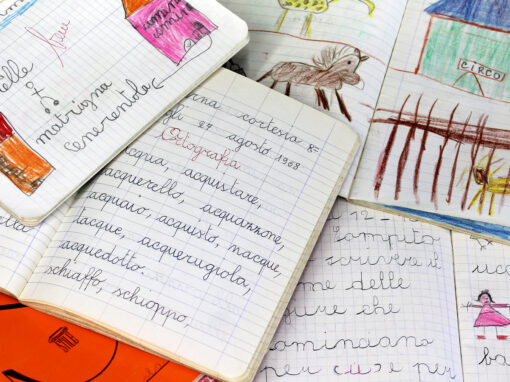 elle
matrigna
Cenerentola
cortesia 8=
gli 27 agosto 1968
Ortografia
acqua, acquistare,
acquerello, acquazzone,
acquaio, acquisto, nacque,
tacque, acquerugiola,
acquedotto.
schiaffo, schioppo,
STILE
CIRCO
ompito
crivere il
me delle
gure che
ominciano
per
ba